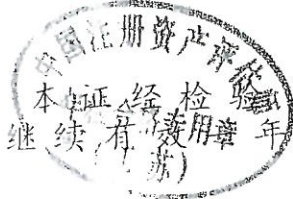 中国注册资产评估
本证经检验
继续有效 年
用章
苏)